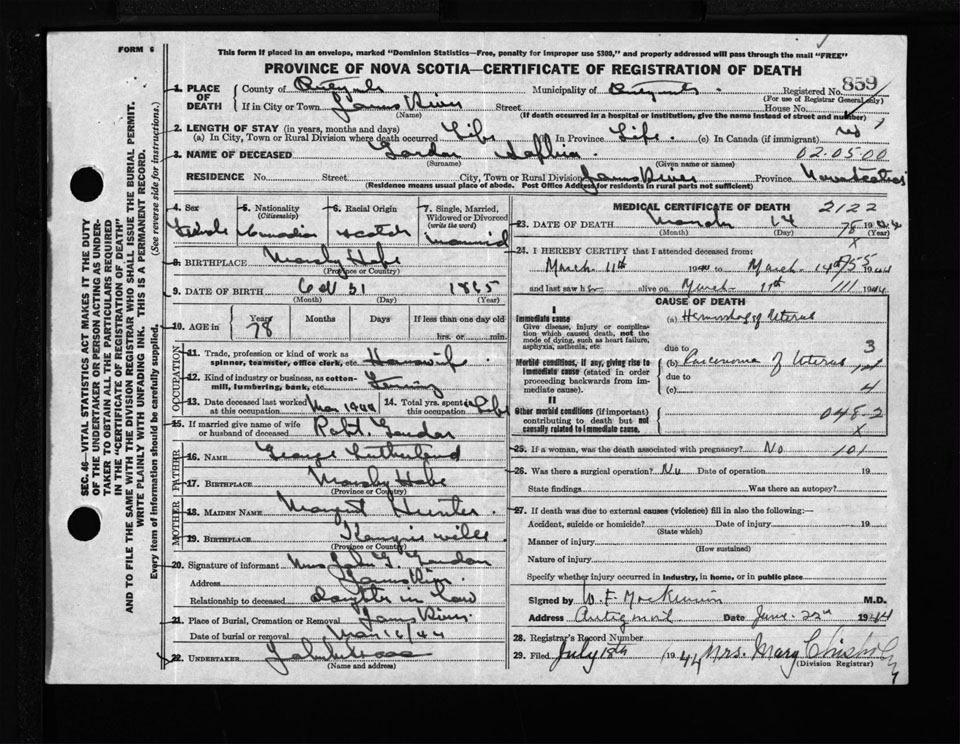 FORM 6
This form if placed in an envelope, marked "Dominion Statistics—Free, penalty for improper use $300," and properly addressed will pass through the mail "FREE"
PROVINCE OF NOVA SCOTIA—CERTIFICATE OF REGISTRATION OF DEATH
SEC. 46—VITAL STATISTICS ACT MAKES IT THE DUTY
OF THE UNDERTAKER OR PERSON ACTING AS UNDER-
TAKER TO OBTAIN ALL THE PARTICULARS REQUIRED
IN THE "CERTIFICATE OF REGISTRATION OF DEATH"
AND TO FILE THE SAME WITH THE DIVISION REGISTRAR WHO SHALL ISSUE THE BURIAL PERMIT.
WRITE PLAINLY WITH UNFADING INK. THIS IS A PERMANENT RECORD.
Every item of information should be carefully supplied. (See reverse side for instructions.)
1. PLACE OF DEATH County of Municipality of Registered No. 859
(For use of Registrar General only)
If in City or Town James River Street House No.
(Name) (If death occurred in a hospital or institution, give the name instead of street and number)
2. LENGTH OF STAY (in years, months and days)
(a) In City, Town or Rural Division where death occurred Life In Province Life (c) In Canada (if immigrant)
3. NAME OF DECEASED 02.0500
(Surname) (Given name or names)
RESIDENCE No. Street City, Town or Rural Division James River Province Nova Scotia
(Residence means usual place of abode. Post Office Address for residents in rural parts not sufficient)
4. Sex 5. Nationality (Citizenship) 6. Racial Origin 7. Single, Married, Widowed or Divorced (write the word)
Female Canadian Scotch Married
8. BIRTHPLACE Marshy Hope
(Province or Country)
9. DATE OF BIRTH Oct 31 1865
(Month) (Day) (Year)
10. AGE in Years Months Days If less than one day old
78 hrs. or min.
OCCUPATION
11. Trade, profession or kind of work as spinner, teamster, office clerk, etc. Housewife
12. Kind of industry or business, as cotton-mill, lumbering, bank, etc.
13. Date deceased last worked at this occupation Mar 1944 14. Total yrs. spent in this occupation Life
15. If married give name of wife or husband of deceased Robt.
FATHER
16. NAME George Sutherland
17. BIRTHPLACE Marshy Hope
(Province or Country)
MOTHER
18. MAIDEN NAME Hunter
19. BIRTHPLACE
(Province or Country)
20. Signature of informant Mrs John
Address James River
Relationship to deceased daughter in law
21. Place of Burial, Cremation or Removal James River
Date of burial or removal Mar 16/44
22. UNDERTAKER
(Name and address)
MEDICAL CERTIFICATE OF DEATH 2122
23. DATE OF DEATH March 14 1944
(Month) (Day) (Year)
78
24. I HEREBY CERTIFY that I attended deceased from
March 11th 1944 to March 14th 1944
and last saw her alive on March 11th 1944
CAUSE OF DEATH
I
Immediate cause
Give disease, injury or complication which caused death, not the mode of dying, such as heart failure, asphyxia, asthenia, etc.
(a) Hemorrhage of Uterus
due to 3
Morbid conditions, if any, giving rise to immediate cause (stated in order proceeding backwards from immediate cause).
(b) Carcinoma of Uterus
due to
(c) 4
II
Other morbid conditions (if important) contributing to death but not causally related to immediate cause.
048-2
25. If a woman, was the death associated with pregnancy? No 101
26. Was there a surgical operation? No Date of operation 19
State findings Was there an autopsy?
27. If death was due to external causes (violence) fill in also the following:—
Accident, suicide or homicide? Date of injury 19
(State which)
Manner of injury
(How sustained)
Nature of injury
Specify whether injury occurred in industry, in home, or in public place
Signed by W. F. MacKinnon M.D.
Address Antigonish Date June 22nd 1944
28. Registrar's Record Number
29. Filed July 18th 1944 Mrs. Mary Chisholm
(Division Registrar)